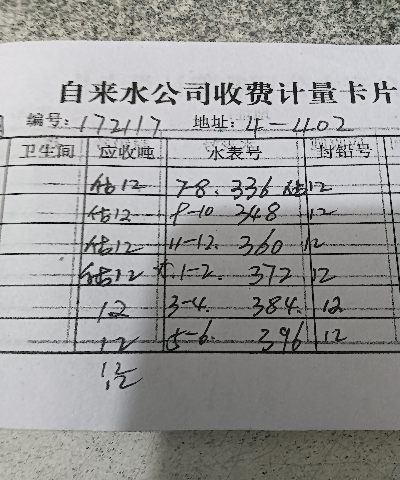 自来水公司收费计量卡片
编号: 172117 地址: 4-402
卫生间 应收吨 水表号 封铅号
估12 7-8. 336 估12
估12 9-10 348 12
估12 11-12. 360 12
估12 1-2. 372 12
12 3-4. 384. 12
12 5-6. 396 12
12